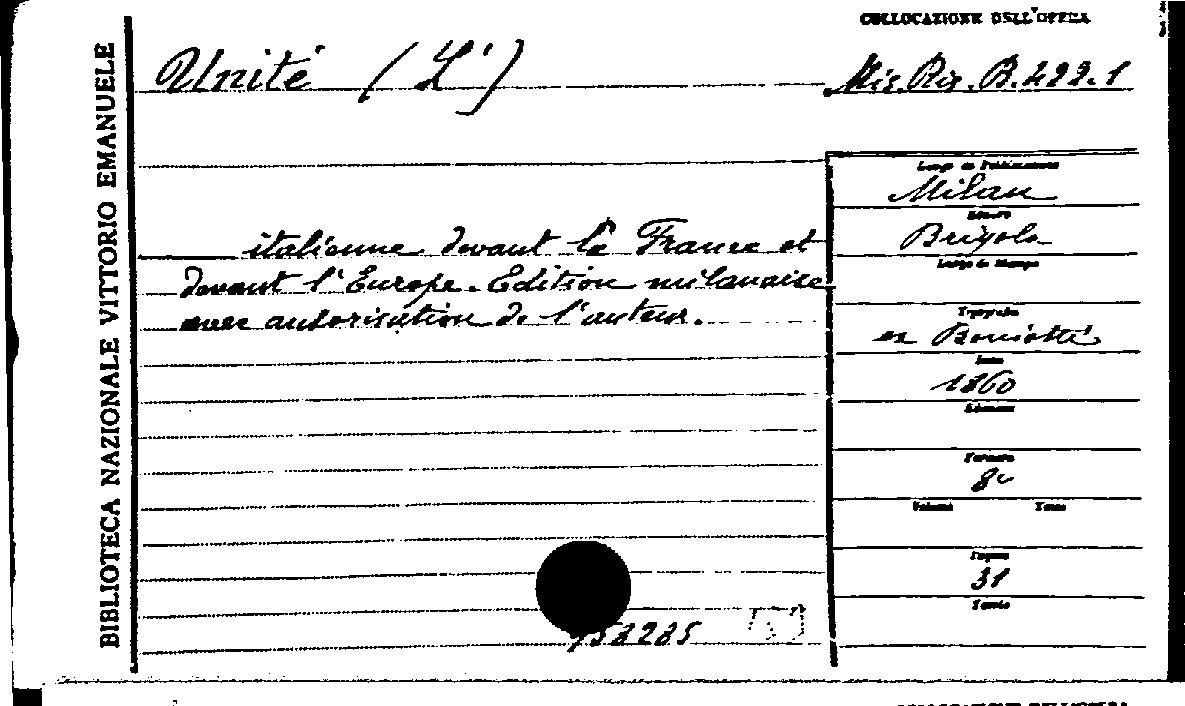 COLLOCAZIONE DELL'OPERA
BIBLIOTECA NAZIONALE VITTORIO EMANUELE
Unité (L')
Mis. Ris. B. 422.1
italienne devant la France et
devant l'Europe. Edition milanaise
avec autorisation de l'auteur.
Luogo di Pubblicazione
Milan
Editore
Brigola
Luogo di Stampa
Tipografia
Boniotti
Data
1860
Edizione
Formato
8°
Volume Tomo
Pagine
31
Tavole
758285